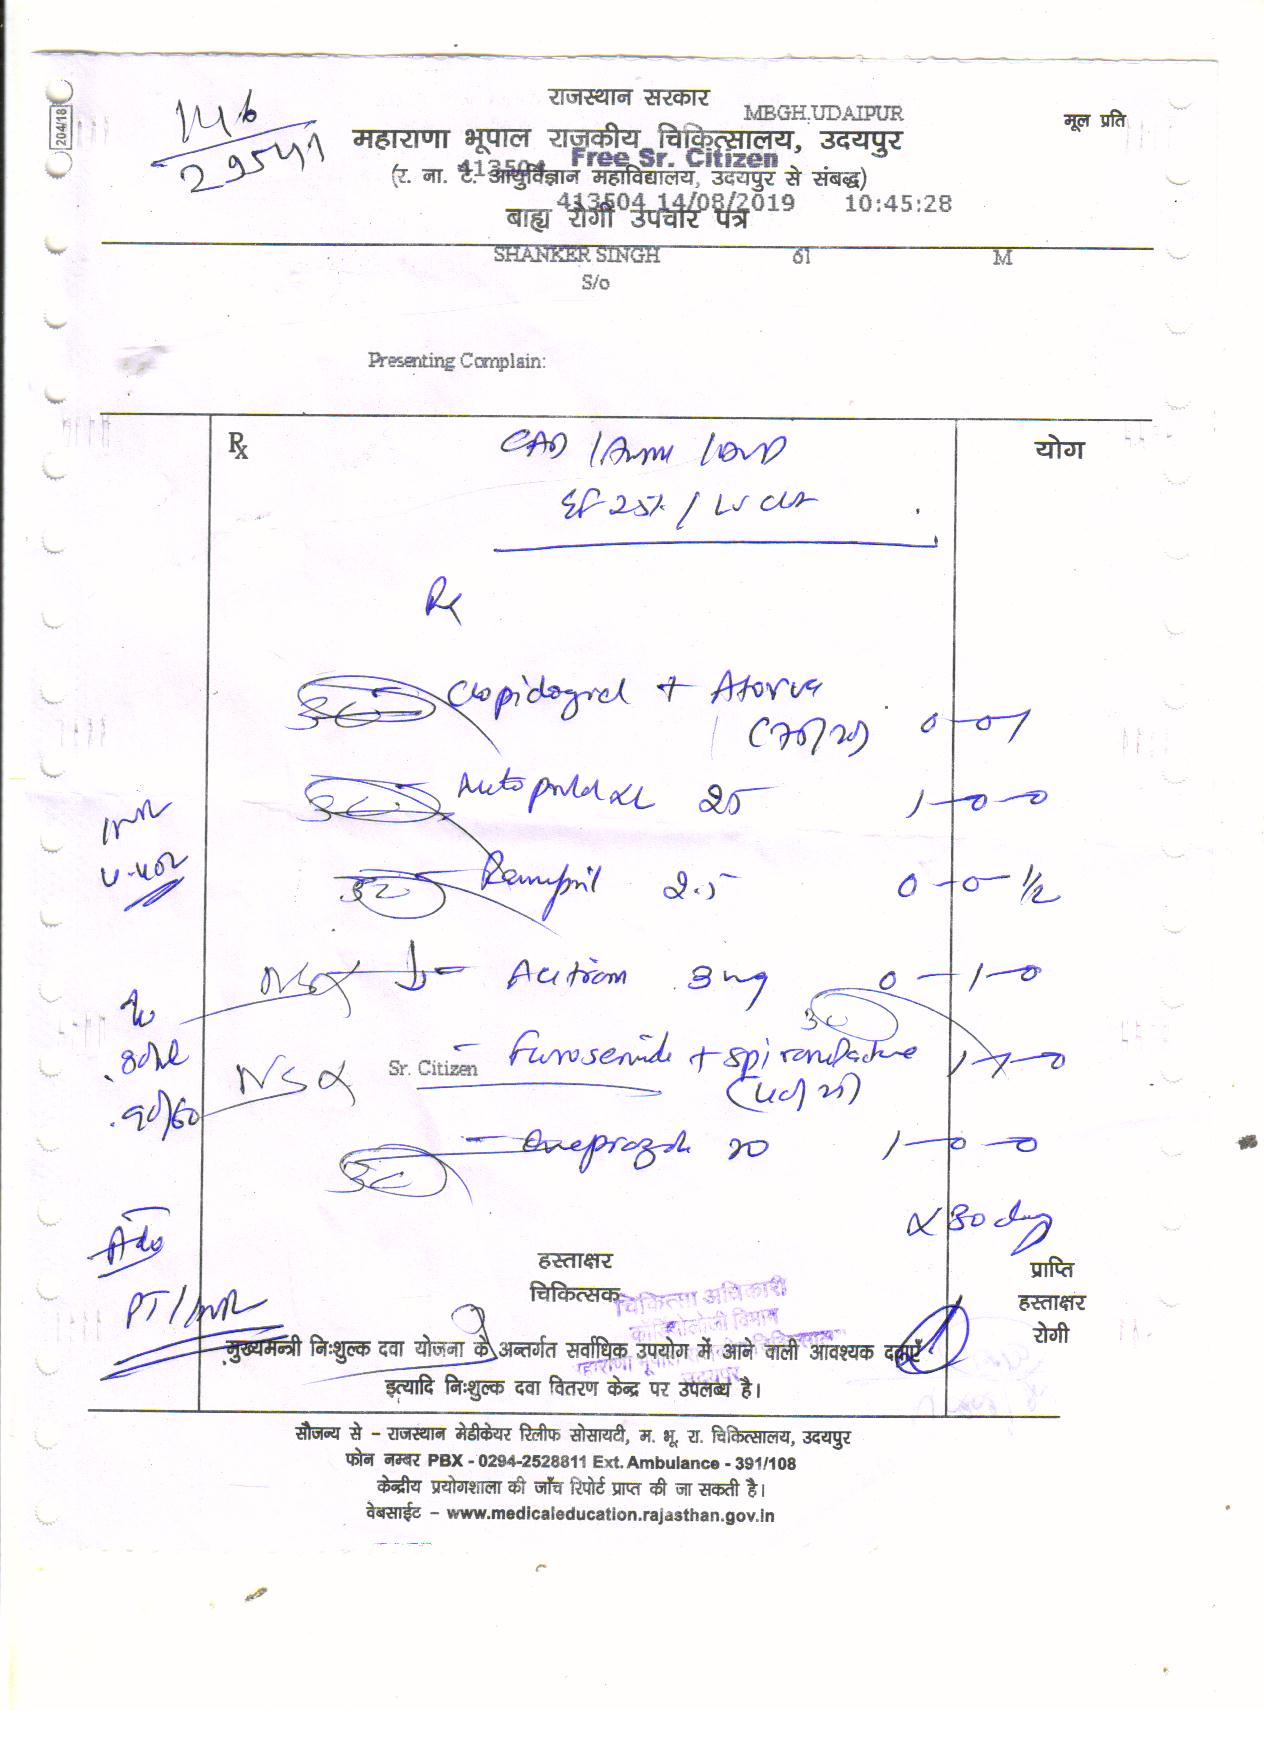 204/18
146
29541
राजस्थान सरकार
MBGH,UDAIPUR
मूल प्रति
महाराणा भूपाल राजकीय चिकित्सालय, उदयपुर
413504 Free Sr. Citizen
(र. ना. टै. आयुर्विज्ञान महाविद्यालय, उदयपुर से संबद्ध)
413504 14/08/2019 10:45:28
बाह्य रोगी उपचार पत्र
SHANKER SINGH 61 M
S/o
Presenting Complain:
Rx
योग
CAD /
EF 25% / LV Clot
Rx
30 Clopidogrel + Atorva
(75/20) 0-0-1
30 25 1-0-0
INR
30 Ramipril 2.5 0-0-1/2
Acitrom 3 mg 0-1-0
30
Sr. Citizen Furosemide + Spironolactone 1-1-0
90/60
30 Omeprazole 20 1-0-0
x 30 day
Adv
PT/INR
हस्ताक्षर
चिकित्सक
प्राप्ति
हस्ताक्षर
रोगी
चिकित्सा अधिकारी
कार्डियोलोजी विभाग
उदयपुर
मुख्यमन्त्री निःशुल्क दवा योजना के अन्तर्गत सर्वाधिक उपयोग में आने वाली आवश्यक दवाएँ
इत्यादि निःशुल्क दवा वितरण केन्द्र पर उपलब्ध है।
सौजन्य से – राजस्थान मेडीकेयर रिलीफ सोसायटी, म. भू. रा. चिकित्सालय, उदयपुर
फोन नम्बर PBX - 0294-2528811 Ext. Ambulance - 391/108
केन्द्रीय प्रयोगशाला की जाँच रिपोर्ट प्राप्त की जा सकती है।
वेबसाईट – www.medicaleducation.rajasthan.gov.in